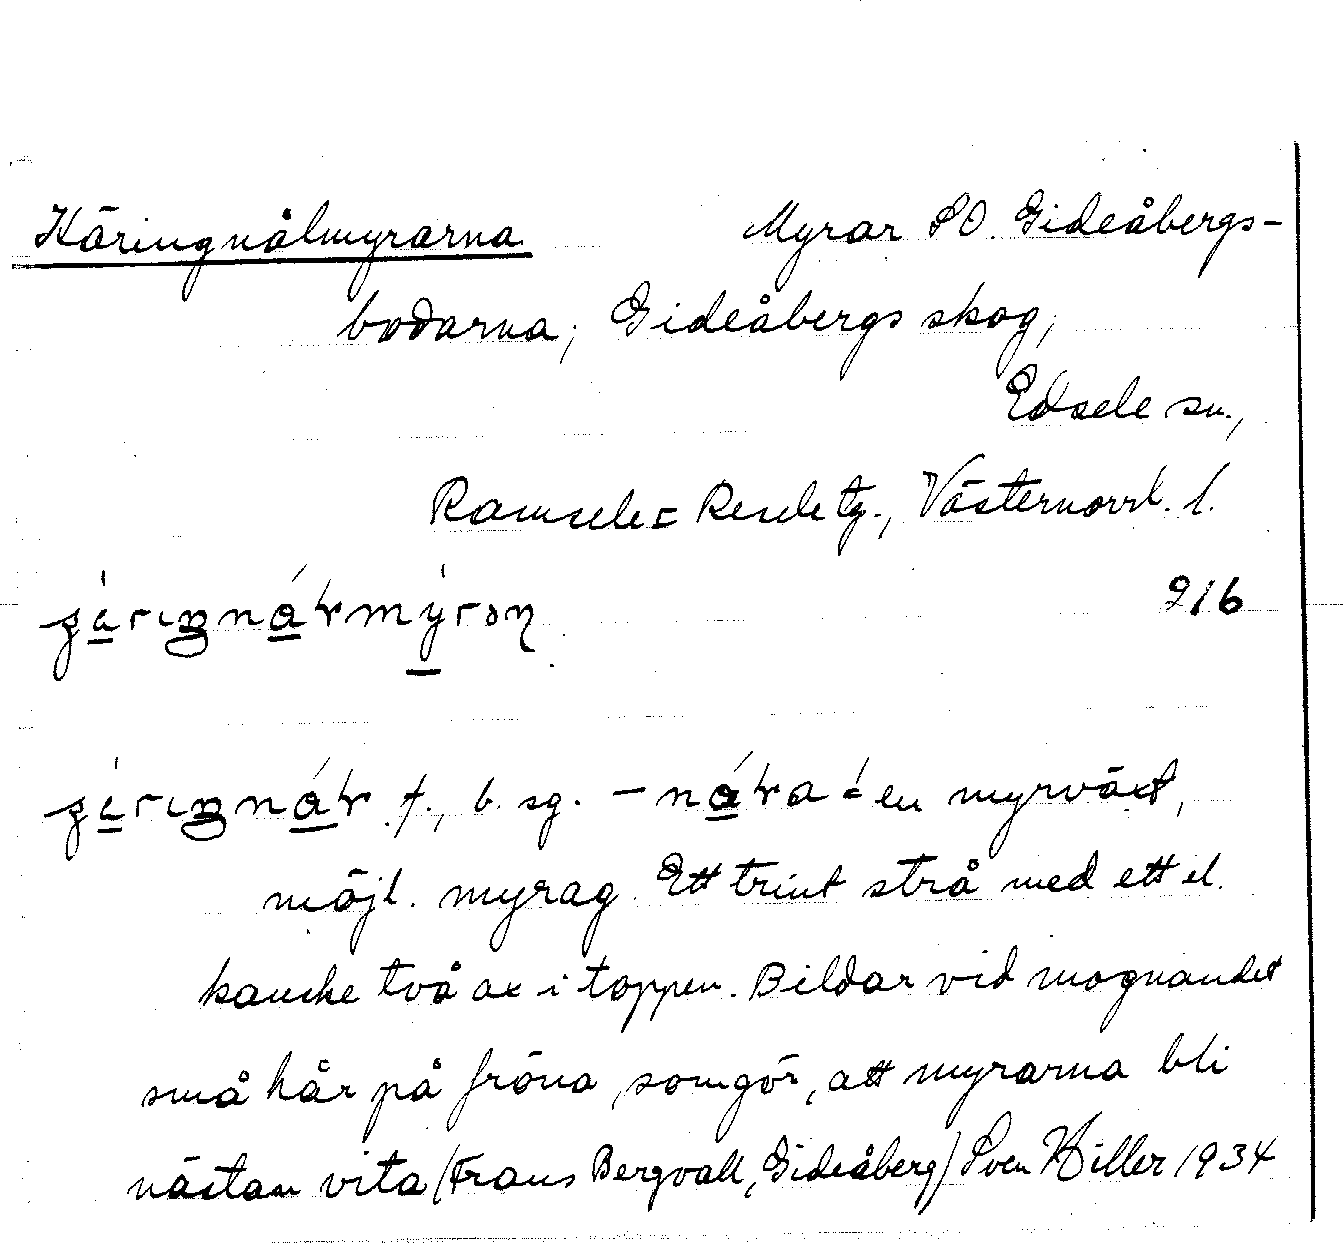 Käringnålmyrarna Myrar SO. Gideåbergs-
bodarna, Gideåbergs skog,
Edsele sn.,
Ramsele = Resele tg., Västernorrl. l.
216
f., b. sg. - = en myrväxt,
möjl. myrag. Ett trint strå med ett el.
kanske två ax i toppen. Bildar vid mognandet
små hår på fröna, som gör, att myrarna bli
nästan vita (Frans Bergvall, Gideåberg) Sven Hiller 1934